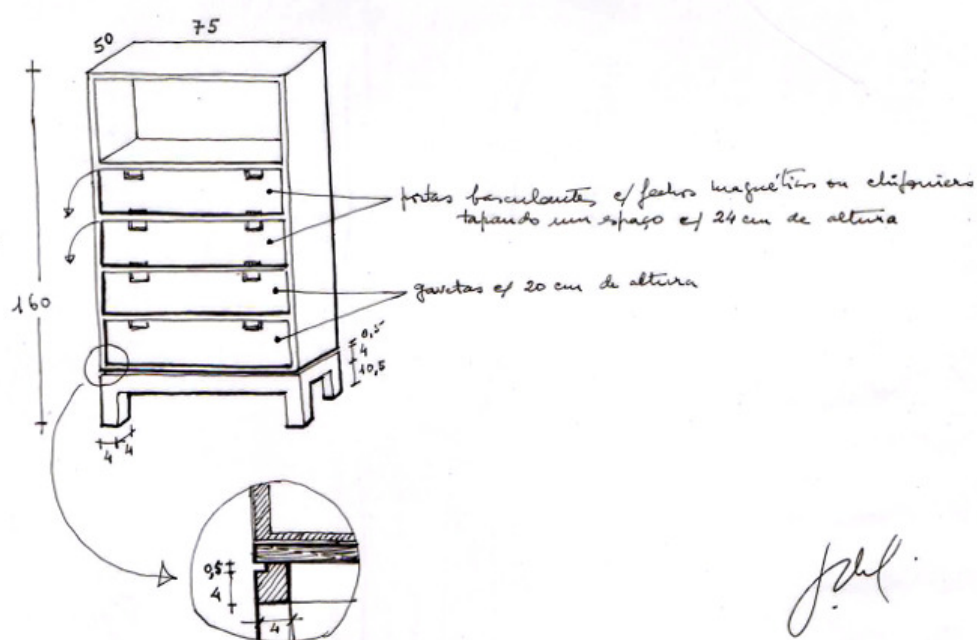 75
50
portas basculantes c/ fechos magnéticos ou
tapando um espaço c/ 24 cm de altura
gavetas c/ 20 cm de altura
160
0,5
4
10,5
4 4
0,5
4
4